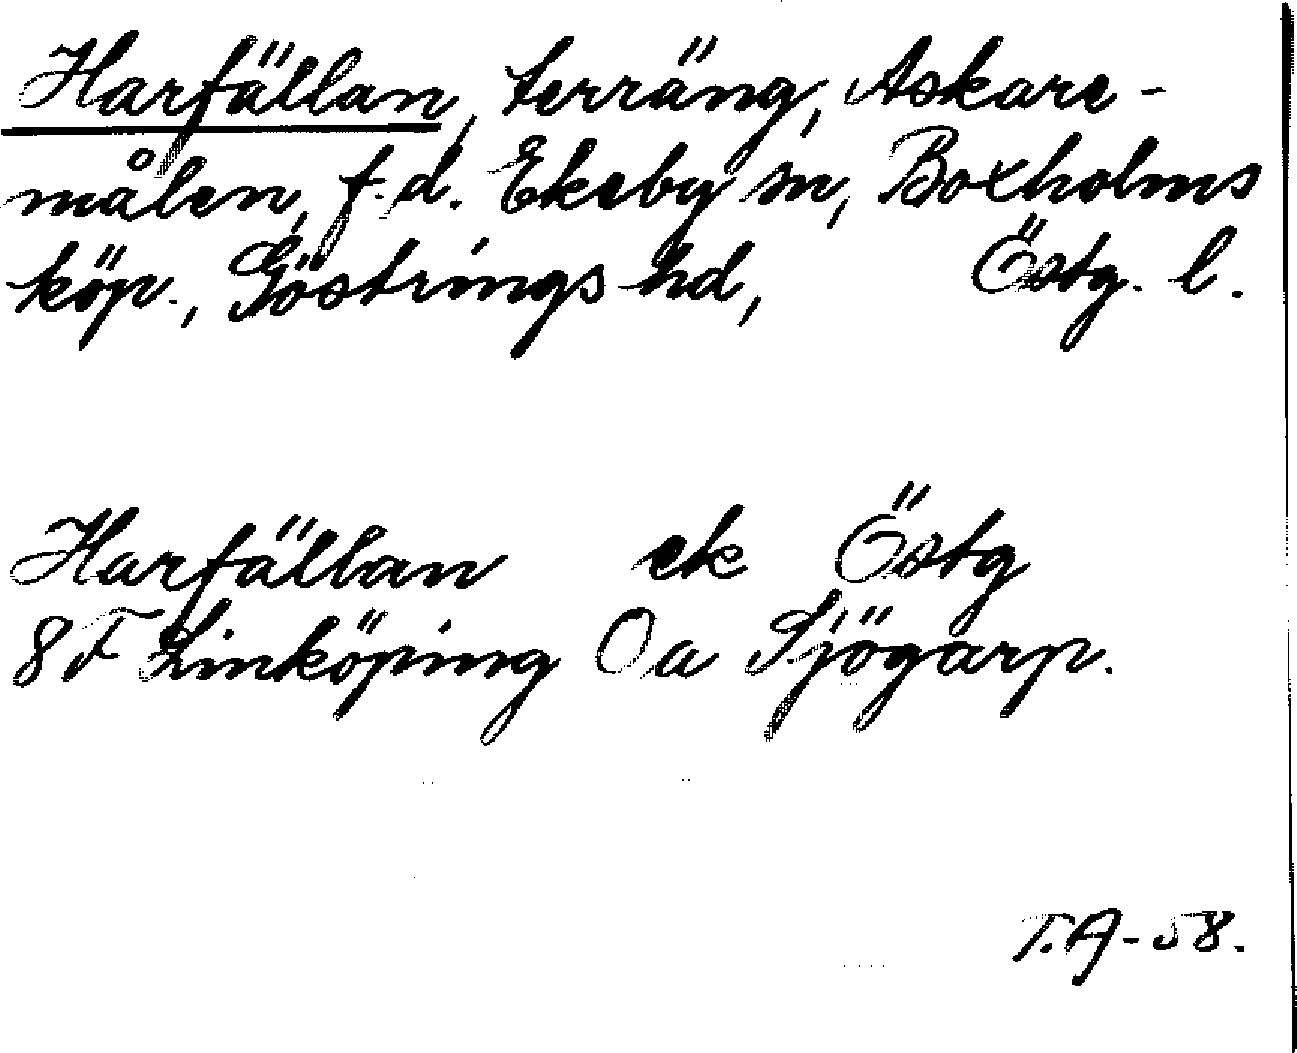 Harfällan, terräng, Askare-
målen, f.d. Ekeby sn, Boxholms
köp., Göstrings hd, Östg. l.
Harfällan ek Östg
8F Linköping Oa Sjögarp.
T.A-58.